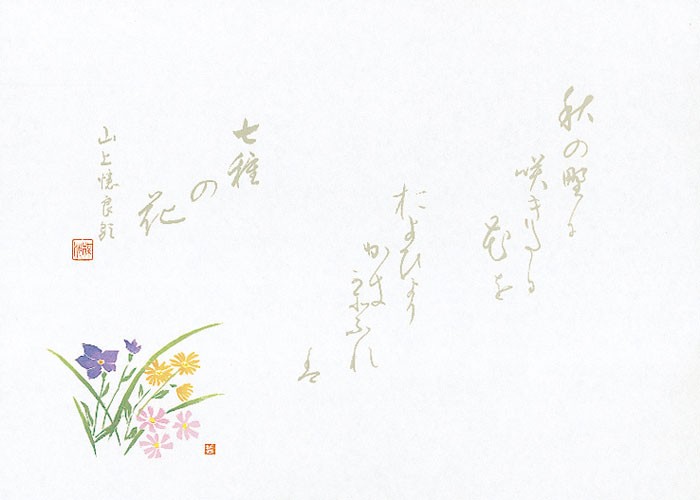 秋の野に
咲きたる
花を
およひより
かき数ふれ
は
七種
の
花
山上憶良歌